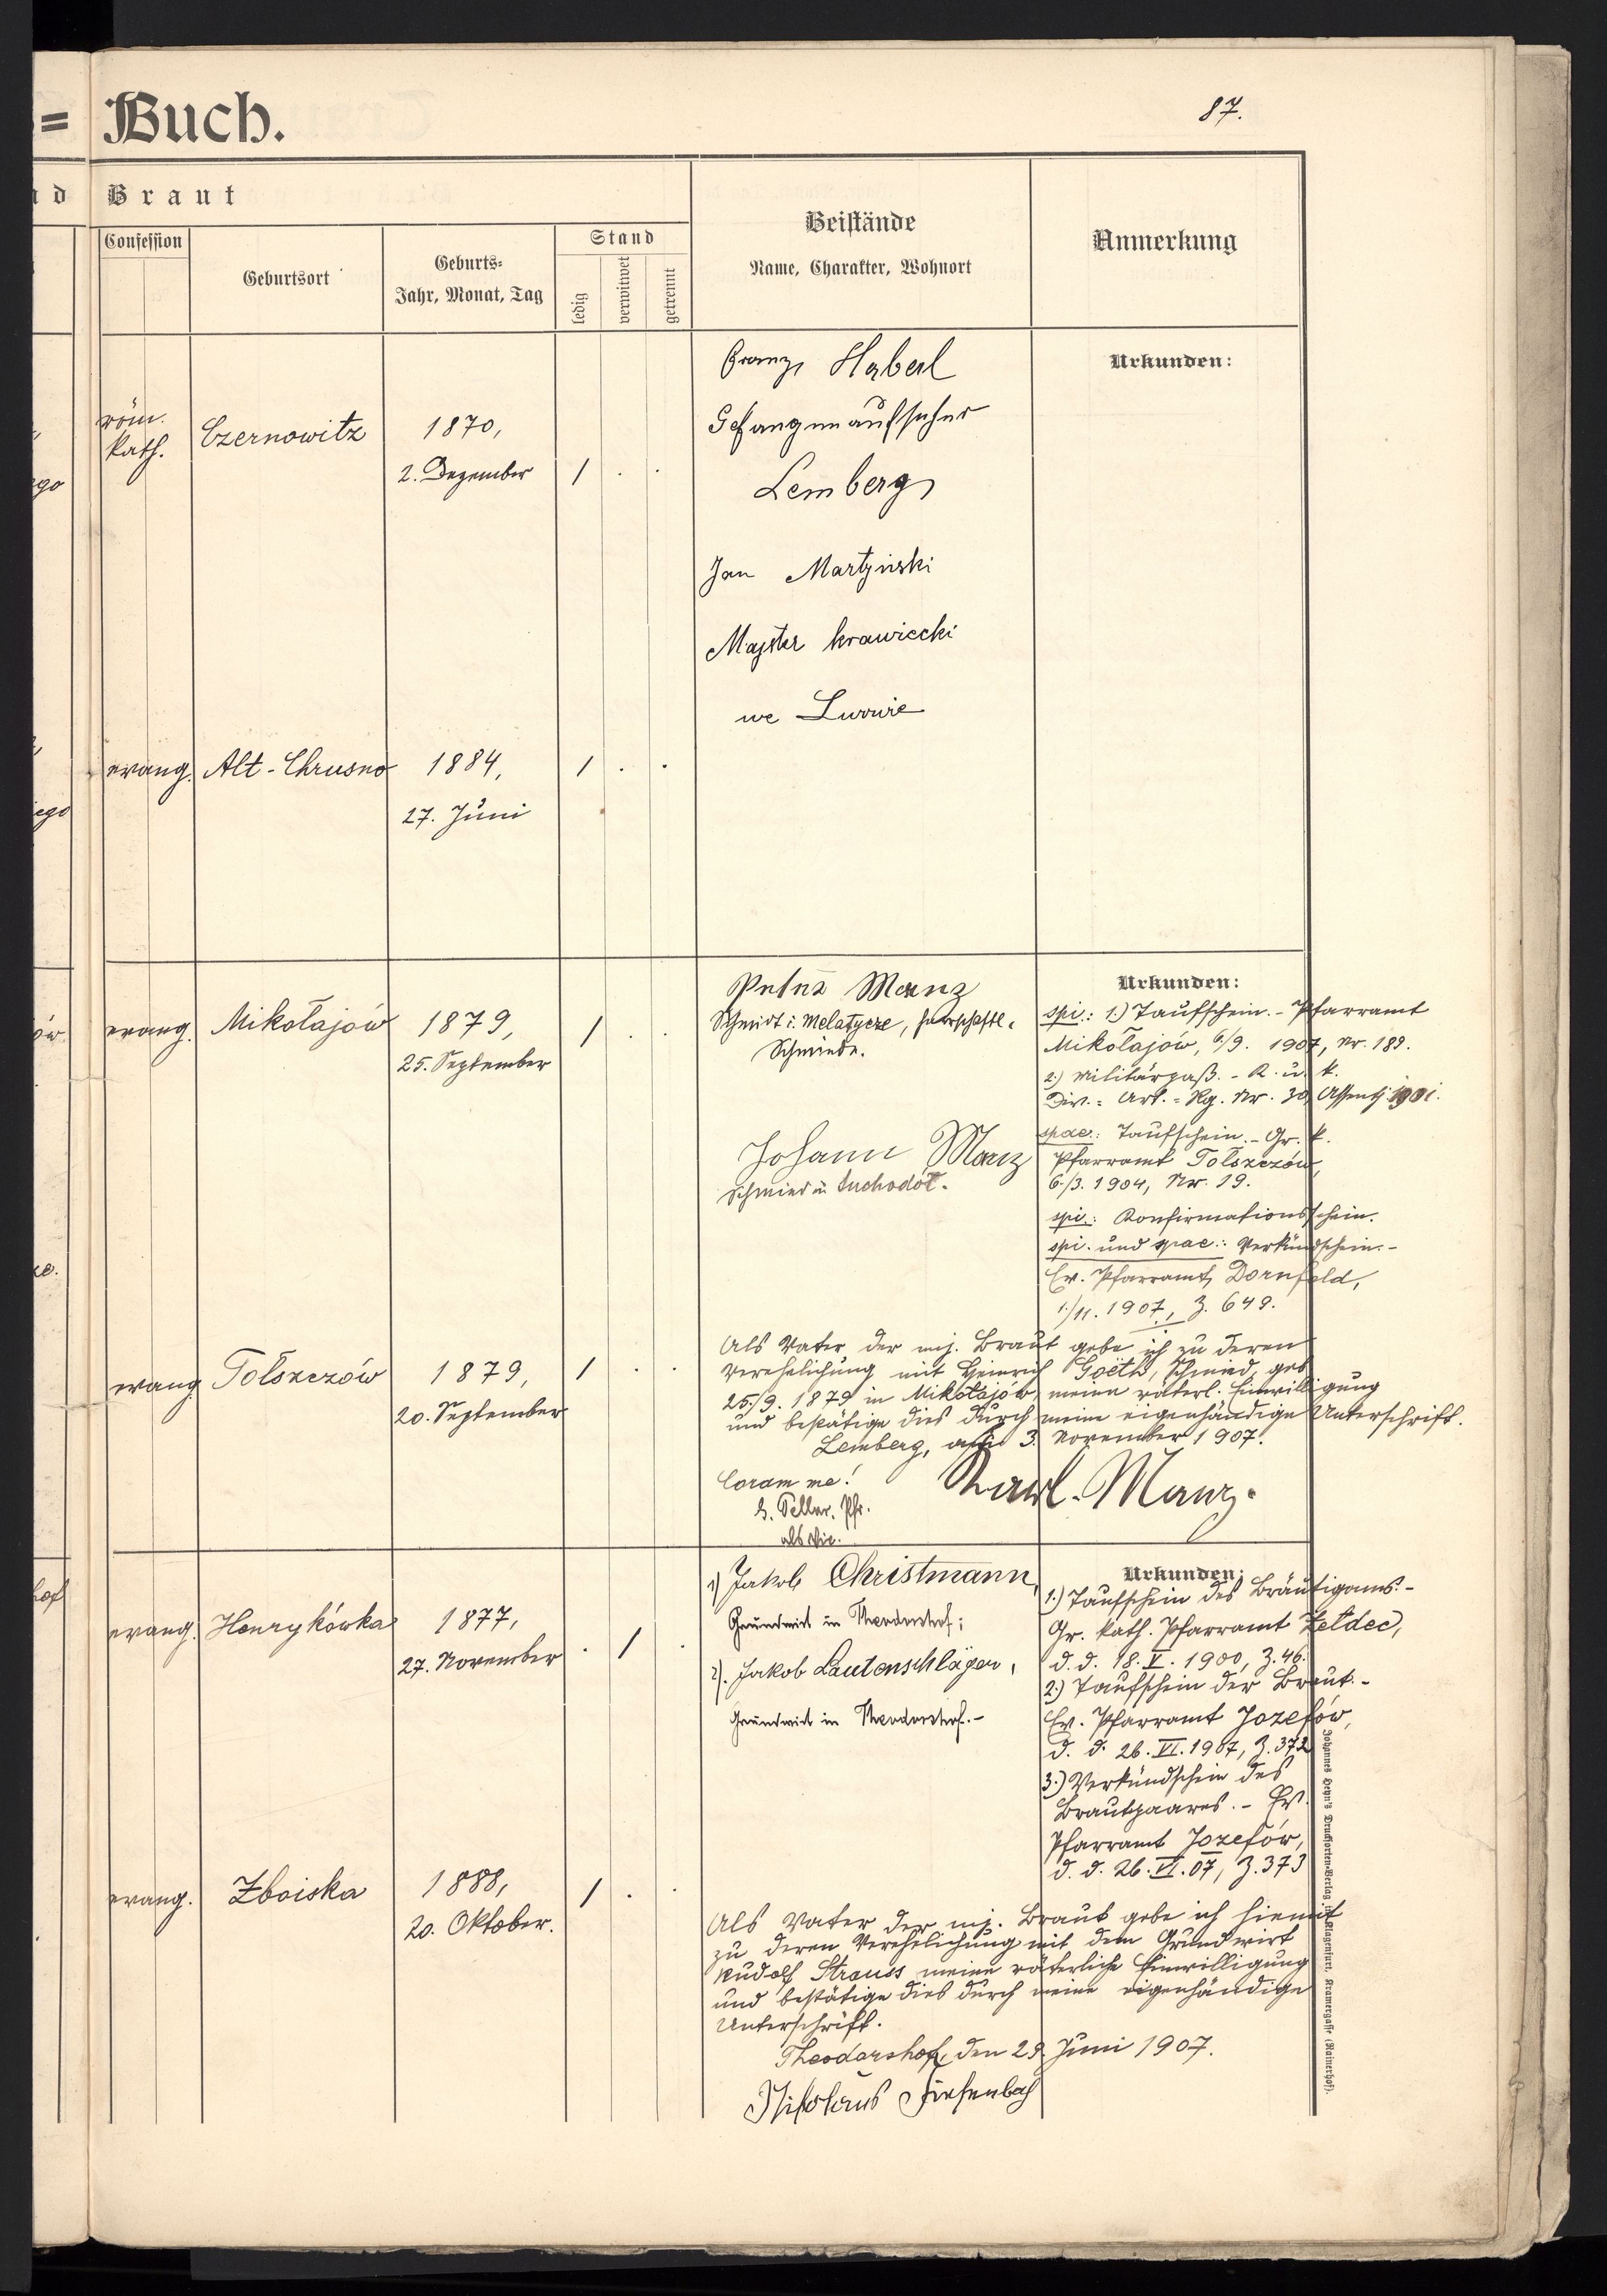 = Buch.
87.
nd Braut
Confession
Geburtsort
Geburts=
Jahr, Monat, Tag
Stand
ledig
verwitwet
getrennt
Beistände
Name, Charakter, Wohnort
Anmerkung
röm.
kath.
Czernowitz
1870,
2. Dezember
1 . .
Franz Haberl
Gefangenaufseher
Lemberg
Jan Martyński
Majster krawiecki
we Lwowie
Urkunden:
evang.
Alt-Chrusno
1884,
27. Juni
1 . .
evang.
Mikołajów
1879,
25. September
1 . .
Peter Manz
Schmidt i. Melatycze, herrschaftl.
Schmiede.
Johann Manz
Schmied in Suchodół.
Urkunden:
spi.: 1.) Taufschein. - Pfarramt
Mikołajów, 6/9. 1907, Nr. 189.
2.) Militärpaß. - K. u. k.
Div. = Art. = Rg. Nr. 30, Assentj. 1901.
spae.: Taufschein. - Gr. k.
Pfarramt Tołszczów,
6./3. 1904, Nr. 19.
spi.: Konfirmationsschein.
spi. und spae.: Verkündschein. -
Ev. Pfarramt Dornfeld,
1./11. 1907, Z. 649.
evang.
Tołszczów
1879,
20. September
1 . .
Als Vater der mj. Braut gebe ich zu deren
Verehelichung mit Heinrich Goëth, Schmied, geb.
25./9. 1879 in Mikołajów, meine väterl. Einwilligung
und bestätige dies durch meine eigenhändige Unterschrift.
Lemberg, am 3. November 1907.
Coram me!
Karl Manz.
als Vic.
evang.
Henrykówka
1877,
27. November
. 1 .
1) Jakob Christmann,
Grundwirt in Theodorshof;
2). Jakob Lautenschläger,
Grundwirt in Theodorshof. -
Urkunden:
1.) Taufschein des Bräutigams. -
Gr. kath. Pfarramt Żełdec,
d. d. 18. V. 1900, Z. 46.
2.) Taufschein der Braut. -
Ev. Pfarramt Józefów,
d. d. 26. VI. 1907, Z. 372
3.) Verkündschein des
Brautpaares. - Ev.
Pfarramt Józefów,
d. d. 26. VI. 07, Z. 373
evang.
Zboiska
1888,
20. Oktober.
1 . .
Als Vater der mj. Braut gebe ich hiemit
zu deren Verehelichung mit dem Grundwirt
Rudolf Strauss meine väterliche Einwilligung
und bestätige dies durch meine eigenhändige
Unterschrift.
Theodorshof, den 29. Juni 1907.
Nikolaus Diefenbach
Johannes Heyn's Drucksorten-Verlag in Klagenfurt, Kramergasse (Rainerhof).